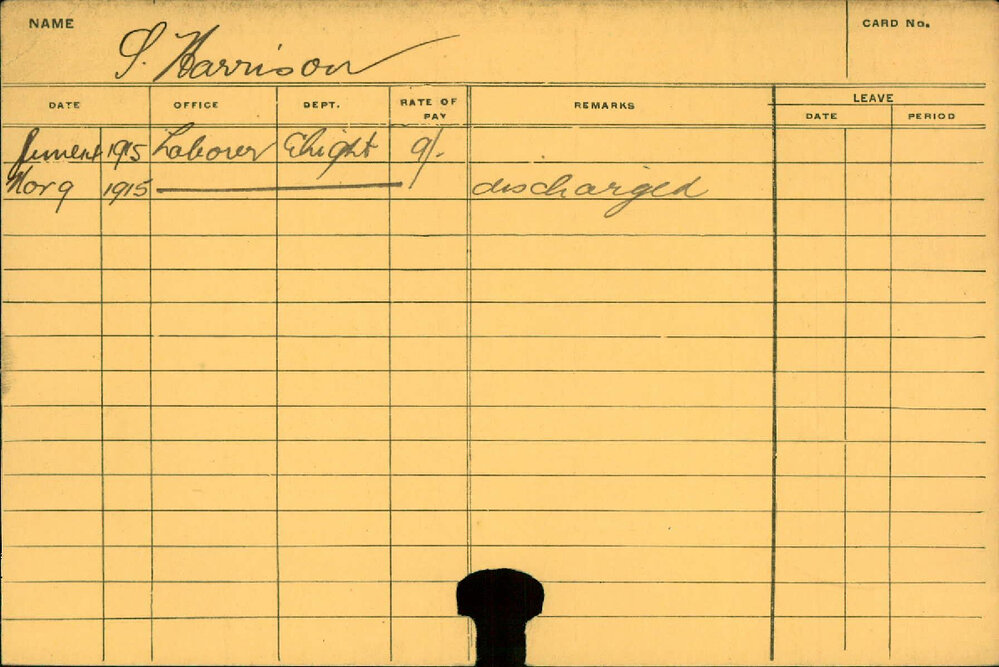 NAME S. Harrison CARD No.
DATE OFFICE DEPT. RATE OF PAY REMARKS LEAVE
DATE PERIOD
1915 Laborer 9/-
Nov 9 1915 discharged